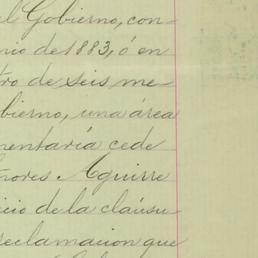 l Gobierno, con-
nio de 1883, ó en
tro de seis me
bierno, una área
mentaria cede
ñores Aguirre
icio de la cláusu
reclamacion que